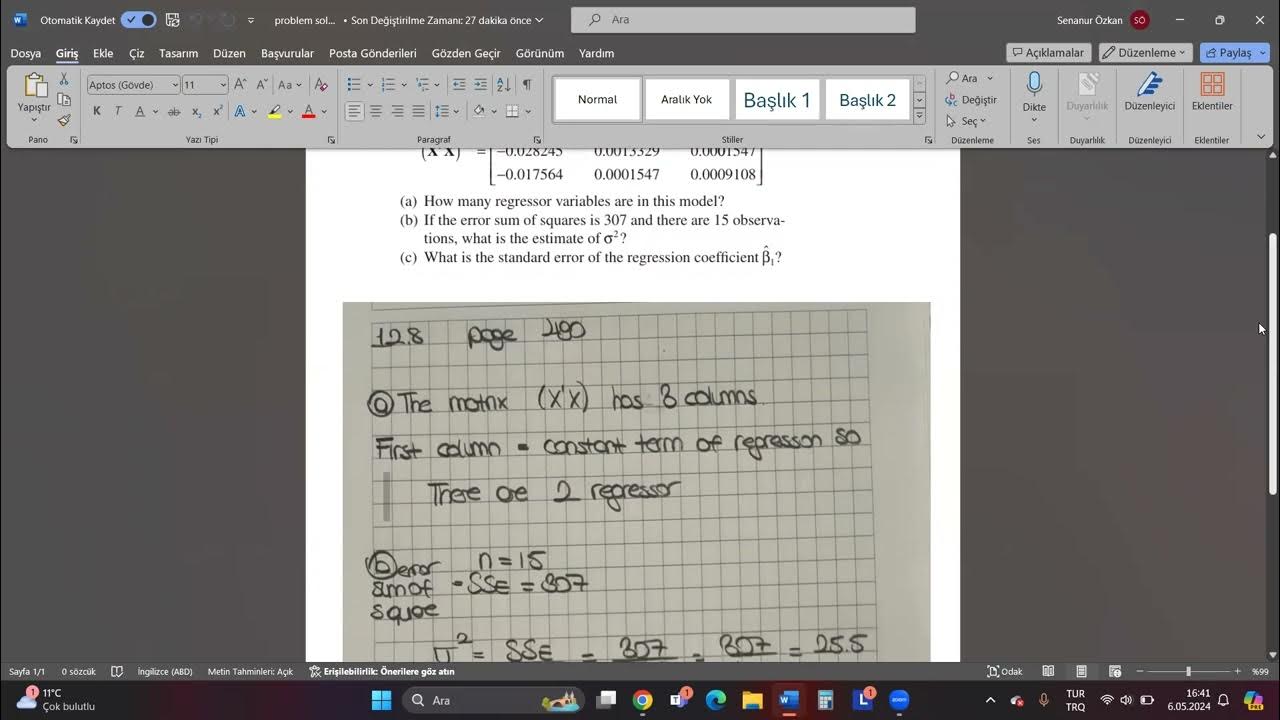 Otomatik Kaydet
problem sol... • Son Değiştirilme Zamanı: 27 dakika önce
Ara
Senanur Özkan
SÖ
Dosya Giriş Ekle Çiz Tasarım Düzen Başvurular Posta Gönderileri Gözden Geçir Görünüm Yardım
Açıklamalar
Düzenleme
Paylaş
Yapıştır
Aptos (Gövde) 11
K T A ab x₂ x²
Normal
Aralık Yok
Başlık 1
Başlık 2
Ara
Değiştir
Seç
Dikte
Duyarlılık
Düzenleyici
Eklentiler
Pano
Yazı Tipi
Paragraf
Stiller
Düzenleme
Ses
Duyarlılık
Düzenleyici
Eklentiler
(X'X) = −0.028245 0.0013329 0.0001547
−0.017564 0.0001547 0.0009108
(a) How many regressor variables are in this model?
(b) If the error sum of squares is 307 and there are 15 observa-
tions, what is the estimate of σ²?
(c) What is the standard error of the regression coefficient β̂₁?
12.8 page 490
a The matrix (X'X) has 3 columns.
First column = constant term of regresson so
There are 2 regressor
b error n = 15
sum of - SSE = 307
square
σ² = SSE = 307 = 307 = 25.5
Sayfa 1/1
0 sözcük
İngilizce (ABD)
Metin Tahminleri: Açık
Erişilebilirlik: Önerilere göz atın
Odak
%99
1
11°C
Çok bulutlu
Ara
1
1
zoom
TUR
TRQ
16:41
6.05.2024